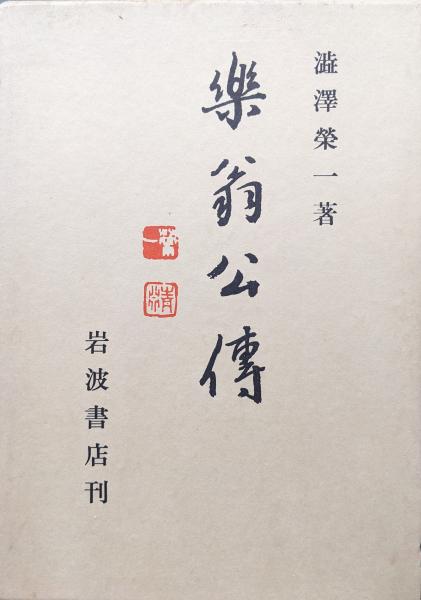 澁澤榮一著
樂翁公傳
岩波書店刊